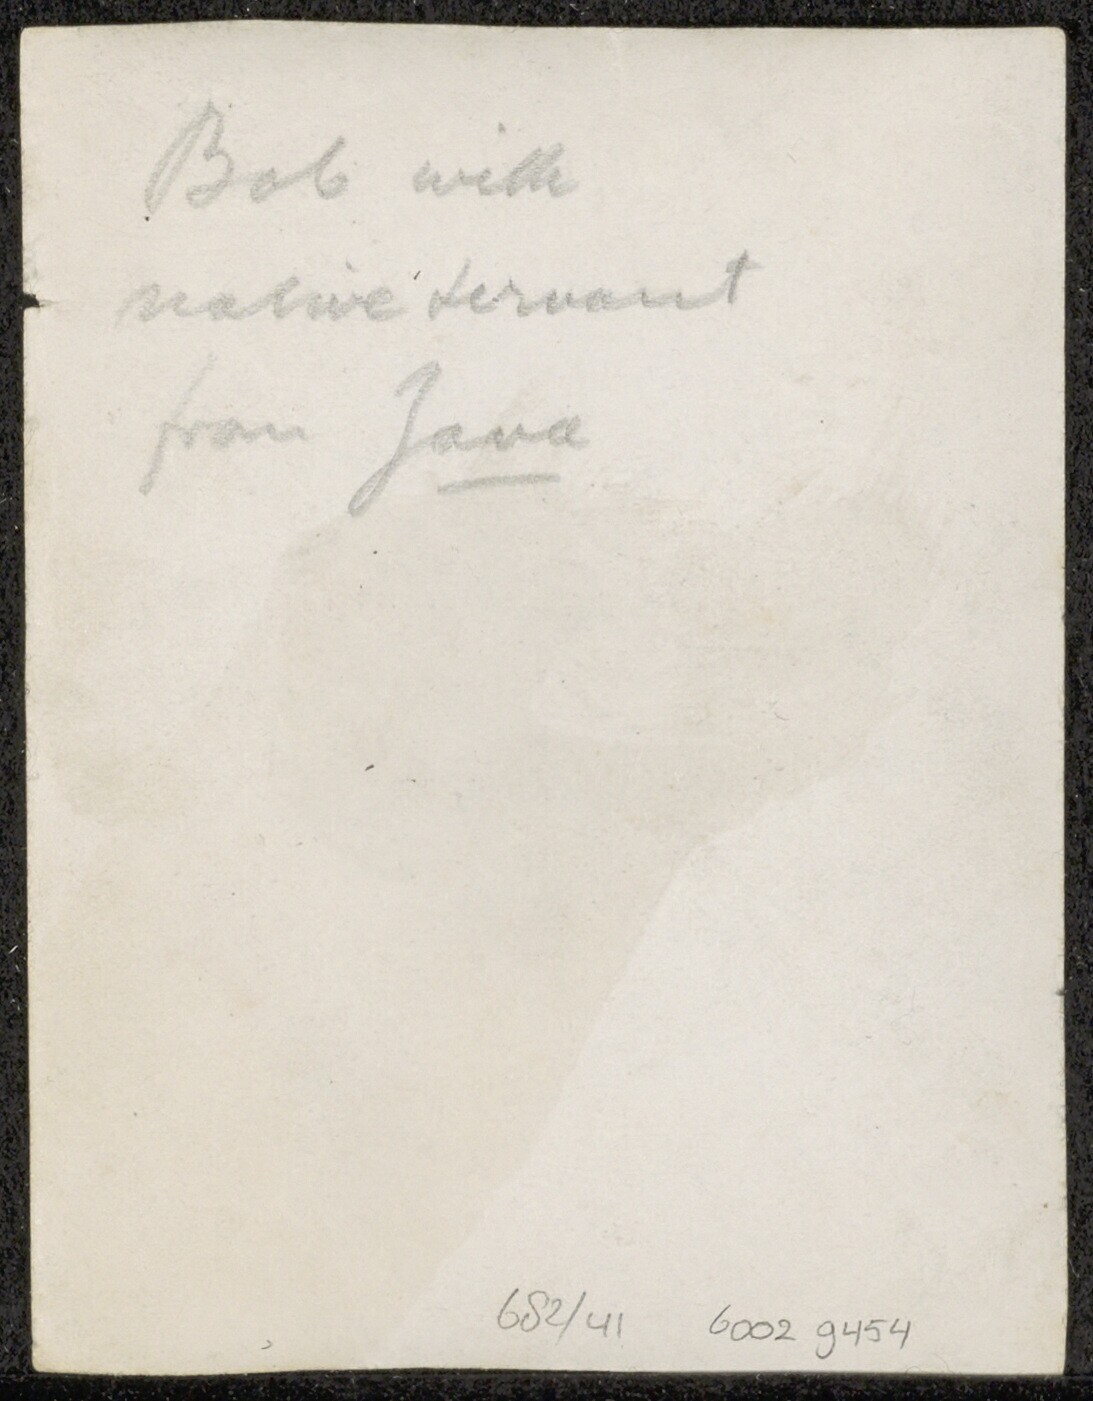 Bob with
native servant
from Java
682/41 6002 9454